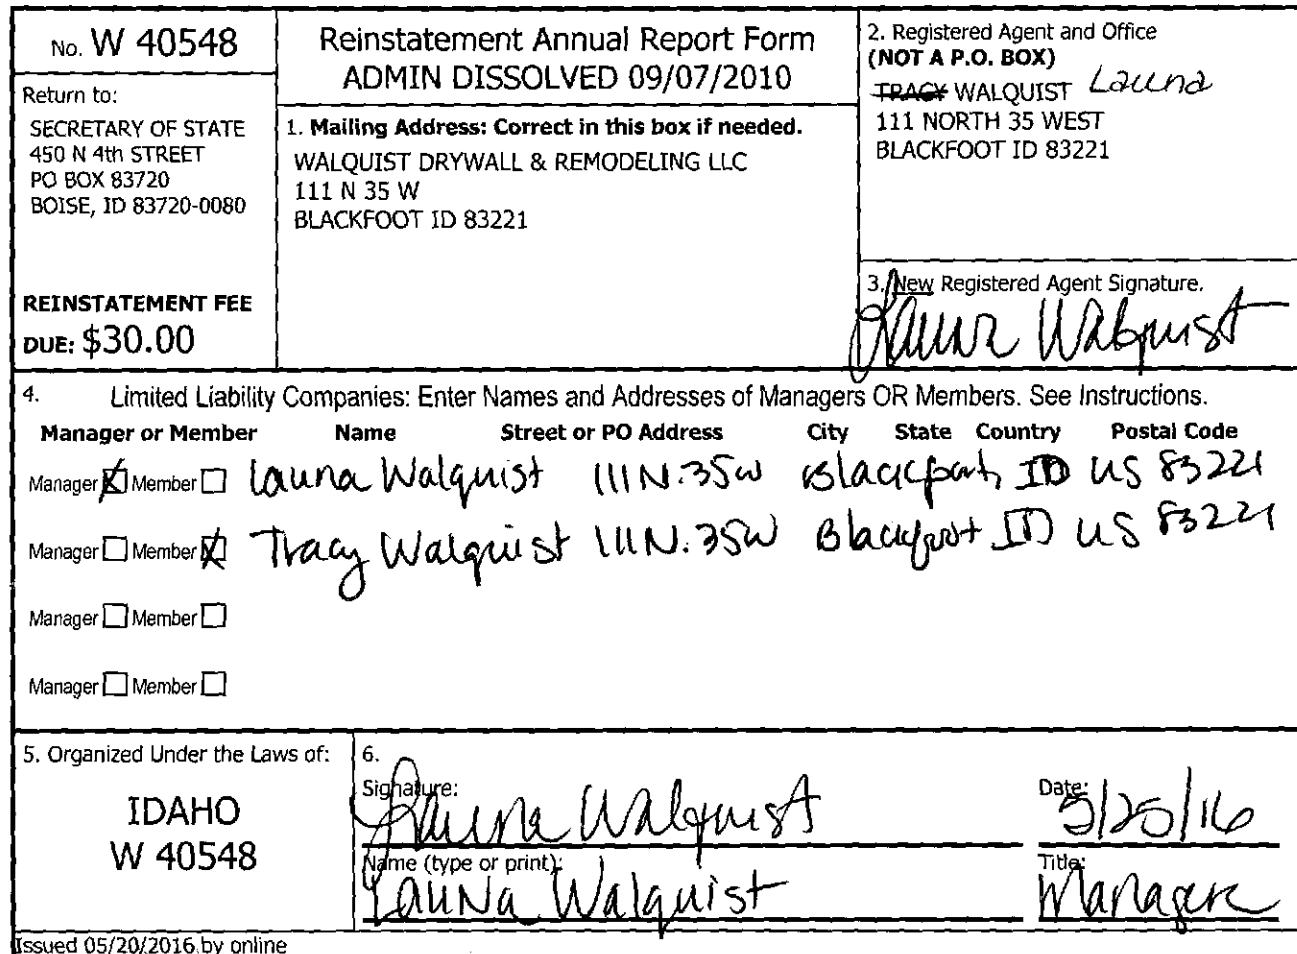 No. W 40548
Return to:
SECRETARY OF STATE
450 N 4th STREET
PO BOX 83720
BOISE, ID 83720-0080
REINSTATEMENT FEE
DUE: $30.00
Reinstatement Annual Report Form
ADMIN DISSOLVED 09/07/2010
1. Mailing Address: Correct in this box if needed.
WALQUIST DRYWALL & REMODELING LLC
111 N 35 W
BLACKFOOT ID 83221
2. Registered Agent and Office
(NOT A P.O. BOX)
TRACY WALQUIST Launa
111 NORTH 35 WEST
BLACKFOOT ID 83221
3. New Registered Agent Signature.
Launa Walquist
4. Limited Liability Companies: Enter Names and Addresses of Managers OR Members. See Instructions.
Manager or Member Name Street or PO Address City State Country Postal Code
Manager Member Launa Walquist 111 N. 35W Blackfoot, ID US 83221
Manager Member Tracy Walquist 111 N. 35W Blackfoot ID US 83221
Manager Member
Manager Member
5. Organized Under the Laws of:
IDAHO
W 40548
6.
Signature: Launa Walquist
Date: 5/25/16
Name (type or print): Launa Walquist
Title: Manager
Issued 05/20/2016 by online